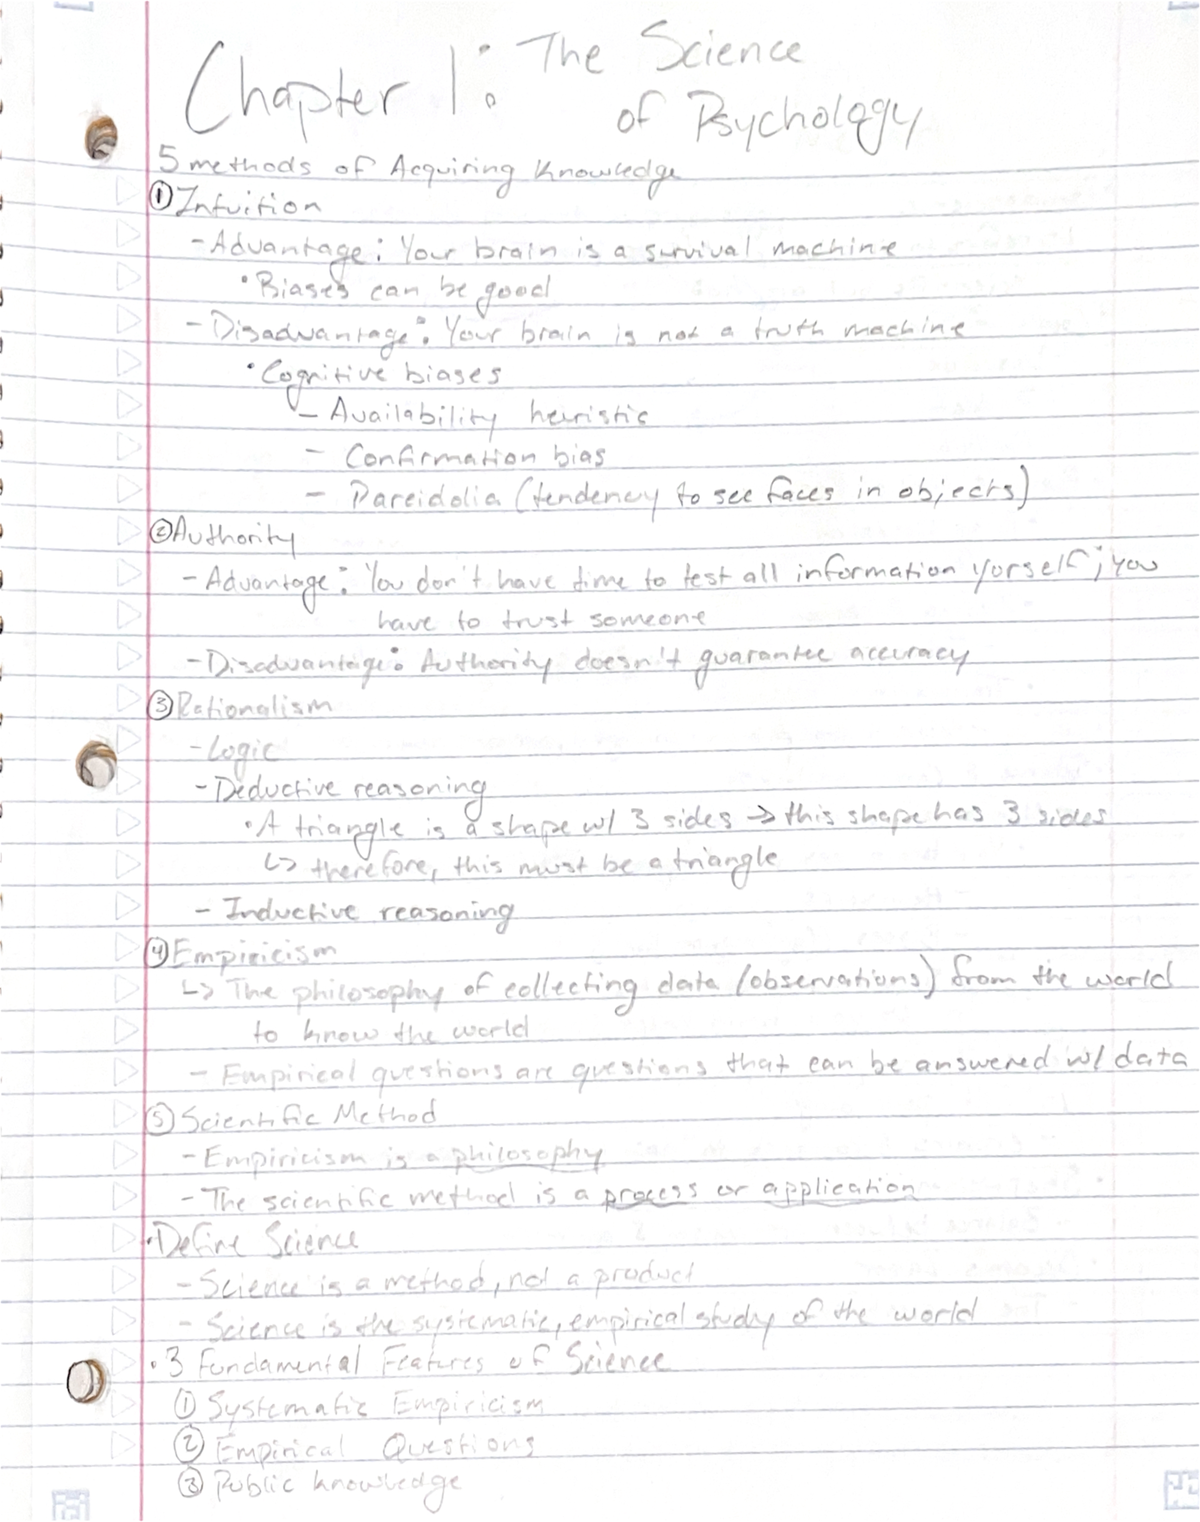 Chapter 1: The Science
of Psychology
5 methods of Acquiring Knowledge
① Intuition
- Advantage: Your brain is a survival machine
• Biases can be good
- Disadvantage: Your brain is not a truth machine
• Cognitive biases
- Availability heuristic
- Confirmation bias
- Pareidolia (tendency to see faces in objects)
② Authority
- Advantage: You don't have time to test all information yorself; you
have to trust someone
- Disadvantage: Authority doesn't guarantee accuracy
③ Rationalism
- Logic
- Deductive reasoning
• A triangle is a shape w/ 3 sides → this shape has 3 sides
↳ therefore, this must be a triangle
- Inductive reasoning
④ Empiricism
↳ The philosophy of collecting data (observations) from the world
to know the world
- Empirical questions are questions that can be answered w/ data
⑤ Scientific Method
- Empiricism is a philosophy
- The scientific method is a process or application
• Define Science
- Science is a method, not a product
- Science is the systematic, empirical study of the world
• 3 Fundamental Features of Science
① Systematic Empiricism
② Empirical Questions
③ Public knowledge